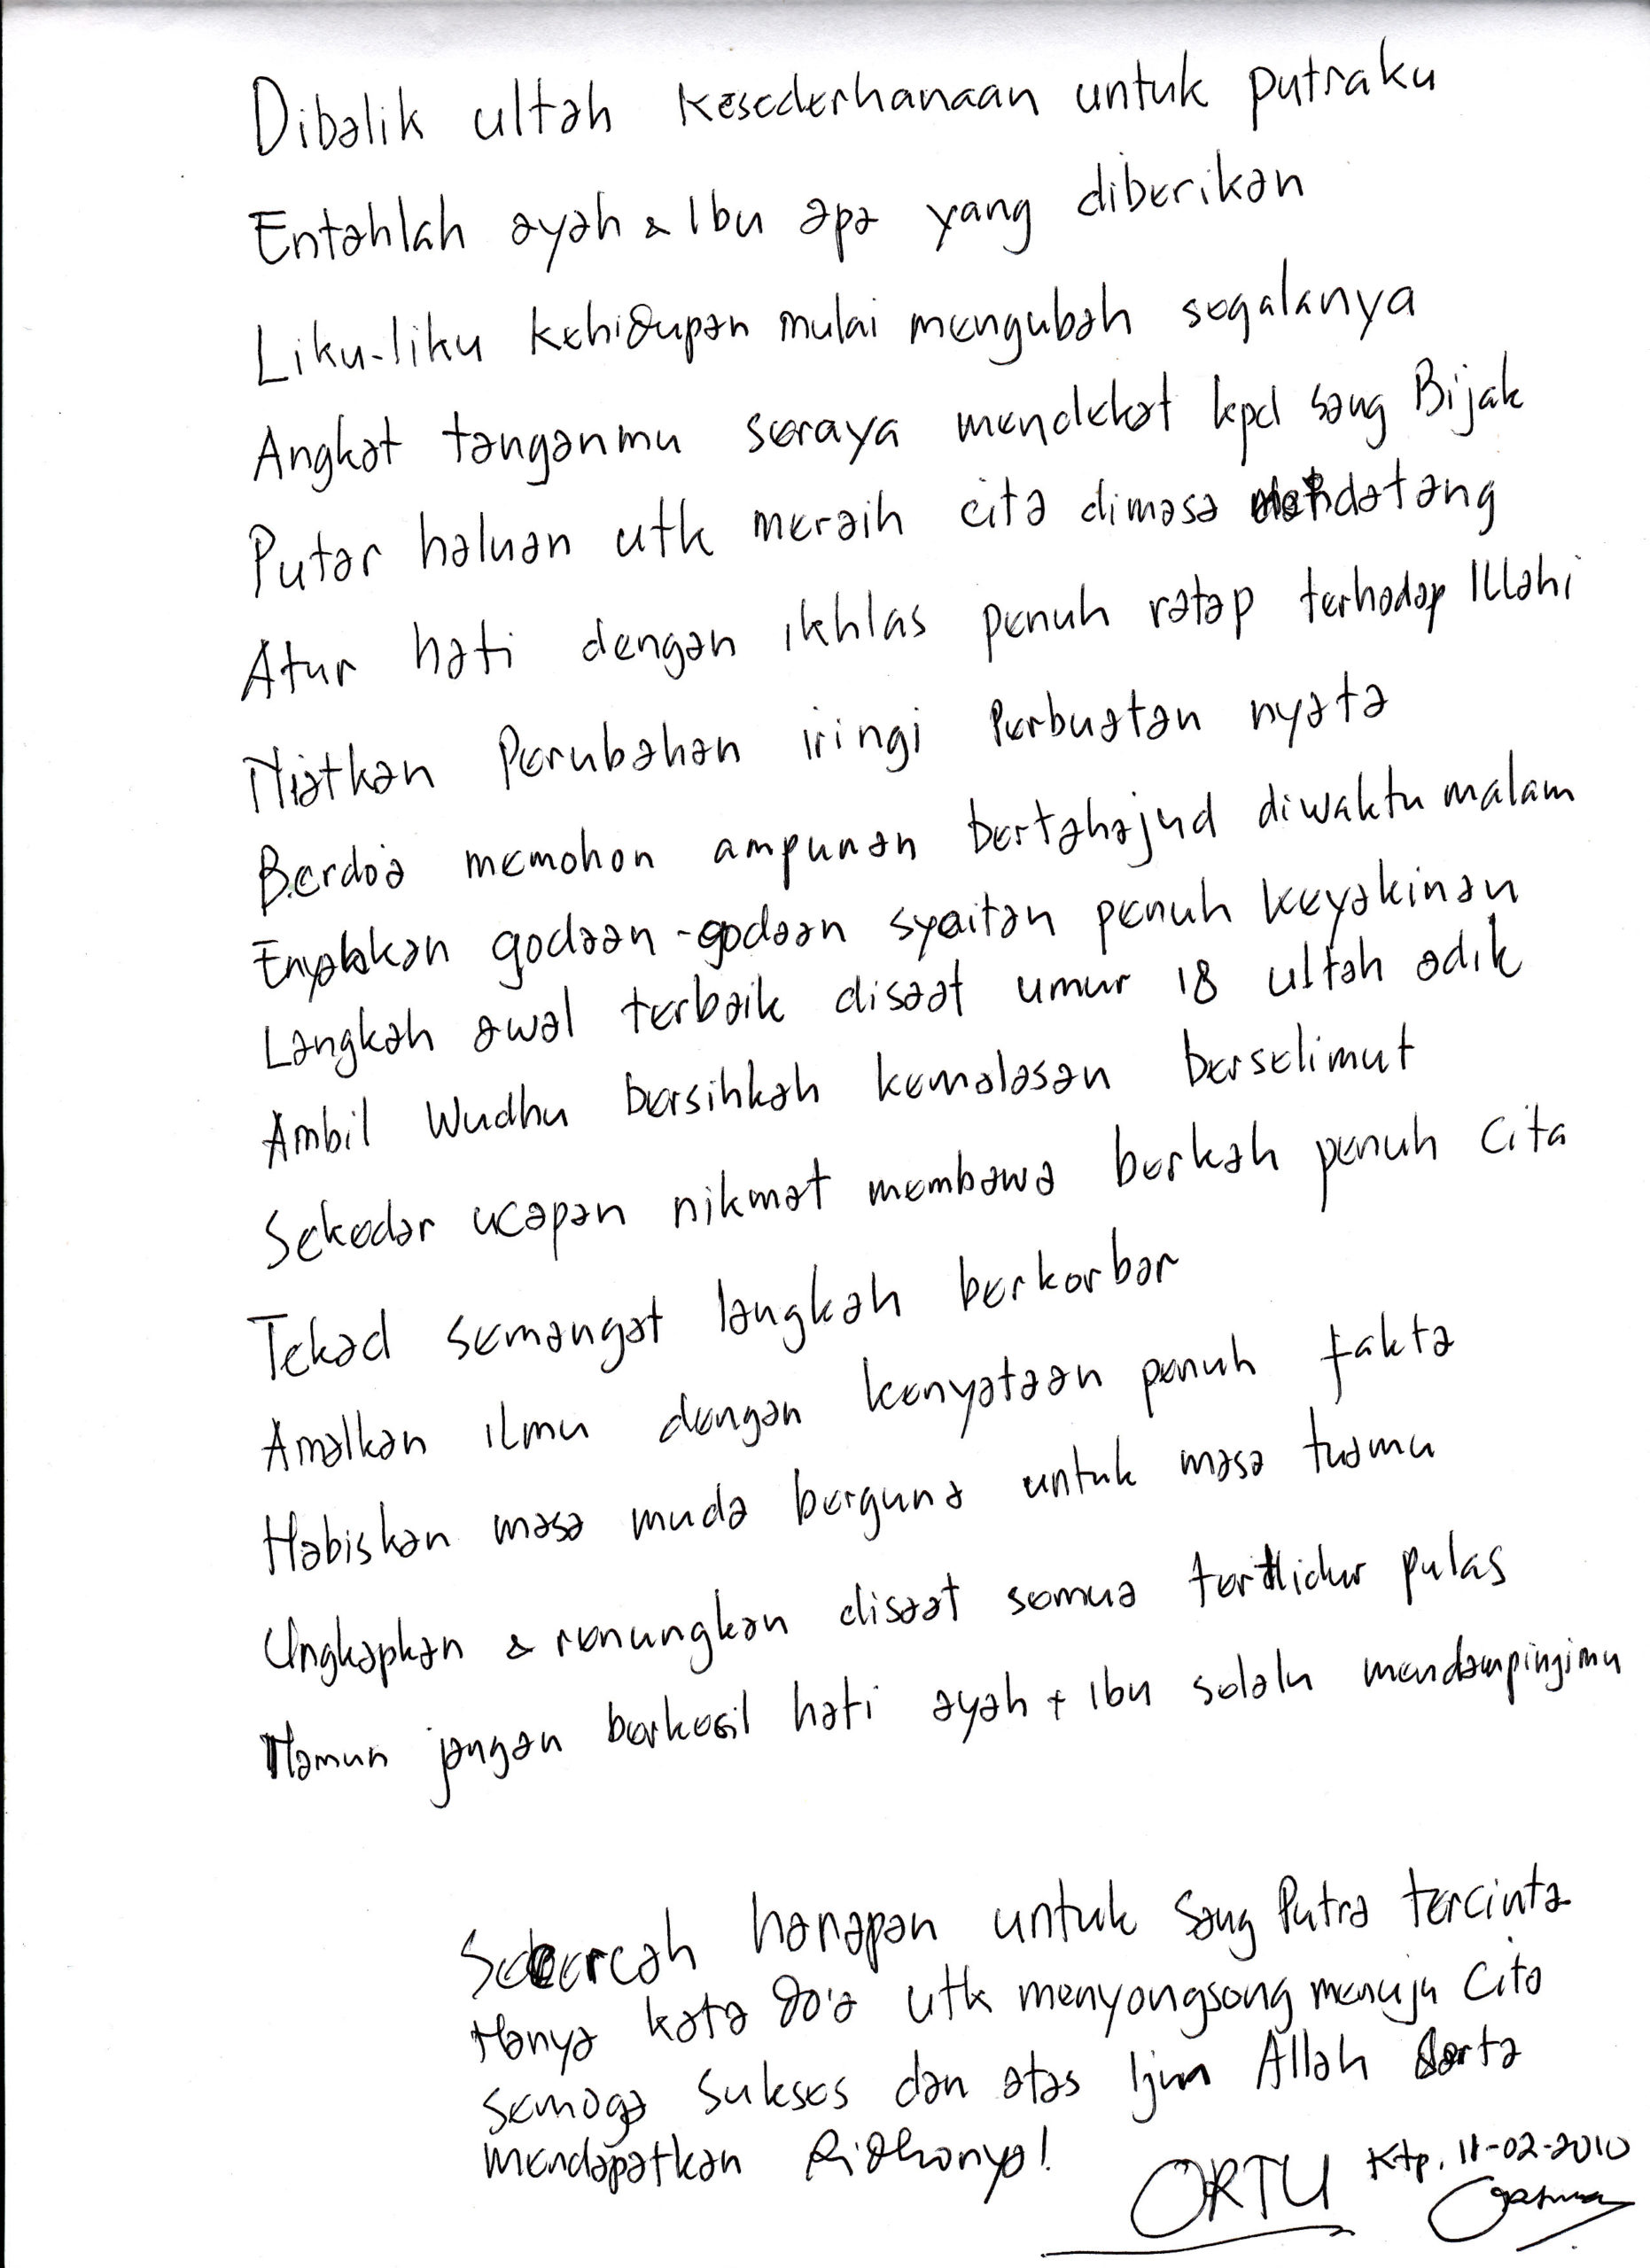 Dibalik ultah kesederhanaan untuk putraku
Entahlah ayah & Ibu apa yang diberikan
Liku-liku kehidupan mulai mengubah segalanya
Angkat tanganmu seraya mendekat kpd sang Bijak
Putar haluan utk meraih cita dimasa mendatang
Atur hati dengan ikhlas penuh ratap terhadap Illahi
Niatkan Perubahan iringi Perbuatan nyata
Berdo'a memohon ampunan bertahajud diwaktu malam
Enyakkan godaan-godaan syaitan penuh keyakinan
Langkah awal terbaik disaat umur 18 ultah adik
Ambil Wudhu bersihkah kemalasan berselimut
Sekedar ucapan nikmat membawa berkah penuh cita
Tekad semangat langkah berkorbar
Amalkan ilmu dengan kenyataan penuh fakta
Habiskan masa muda berguna untuk masa tuamu
Ungkapkan & renungkan disaat semua tertidur pulas
Namun jangan berkecil hati ayah + Ibu selalu mendampingimu
Secercah harapan untuk Sang Putra tercinta
Hanya kata do'a utk menyongsong menuju Cita
semoga Sukses dan atas Ijin Allah Serta
mendapatkan Ridhonya!
ORTU Ktp, 11-02-2010